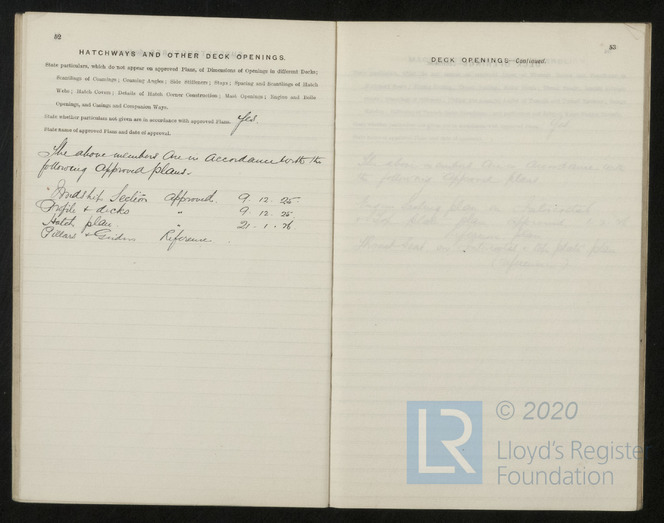 52
HATCHWAYS AND OTHER DECK OPENINGS.
State particulars, which do not appear on approved Plans, of Dimensions of Openings in different Decks;
Scantlings of Coamings; Coaming Angles; Side Stiffeners; Stays; Spacing and Scantlings of Hatch
Webs; Hatch Covers; Details of Hatch Corner Construction; Mast Openings; Engine and Boiler
Openings, and Casings and Companion Ways.
State whether particulars not given are in accordance with approved Plans. Yes.
State name of approved Plans and date of approval.
The above members are in accordance with the
following approved plans.
Midship Section approved. 9.12.25
Profile & decks " 9.12.25
Hatch plan. " 21.1.26.
Pillars & Girders Reference.
53
DECK OPENINGS—Continued.
LR © 2020
Lloyd's Register
Foundation